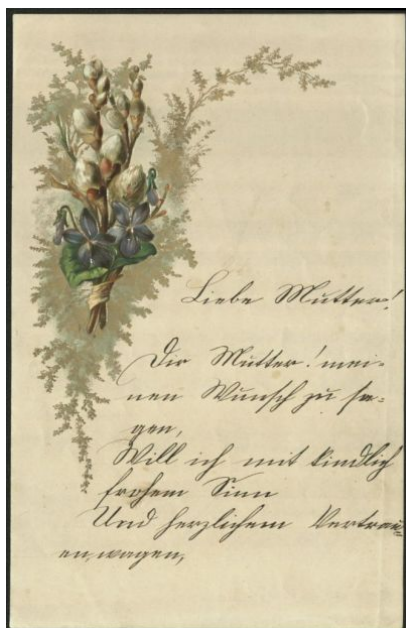 Liebe Mutter!
Dir Mutter! mei-
nen Wunsch zu sa-
gen,
Will ich mit kindlich
frohem Sinn
Und herzlichem Vertrau-
en, wagen,